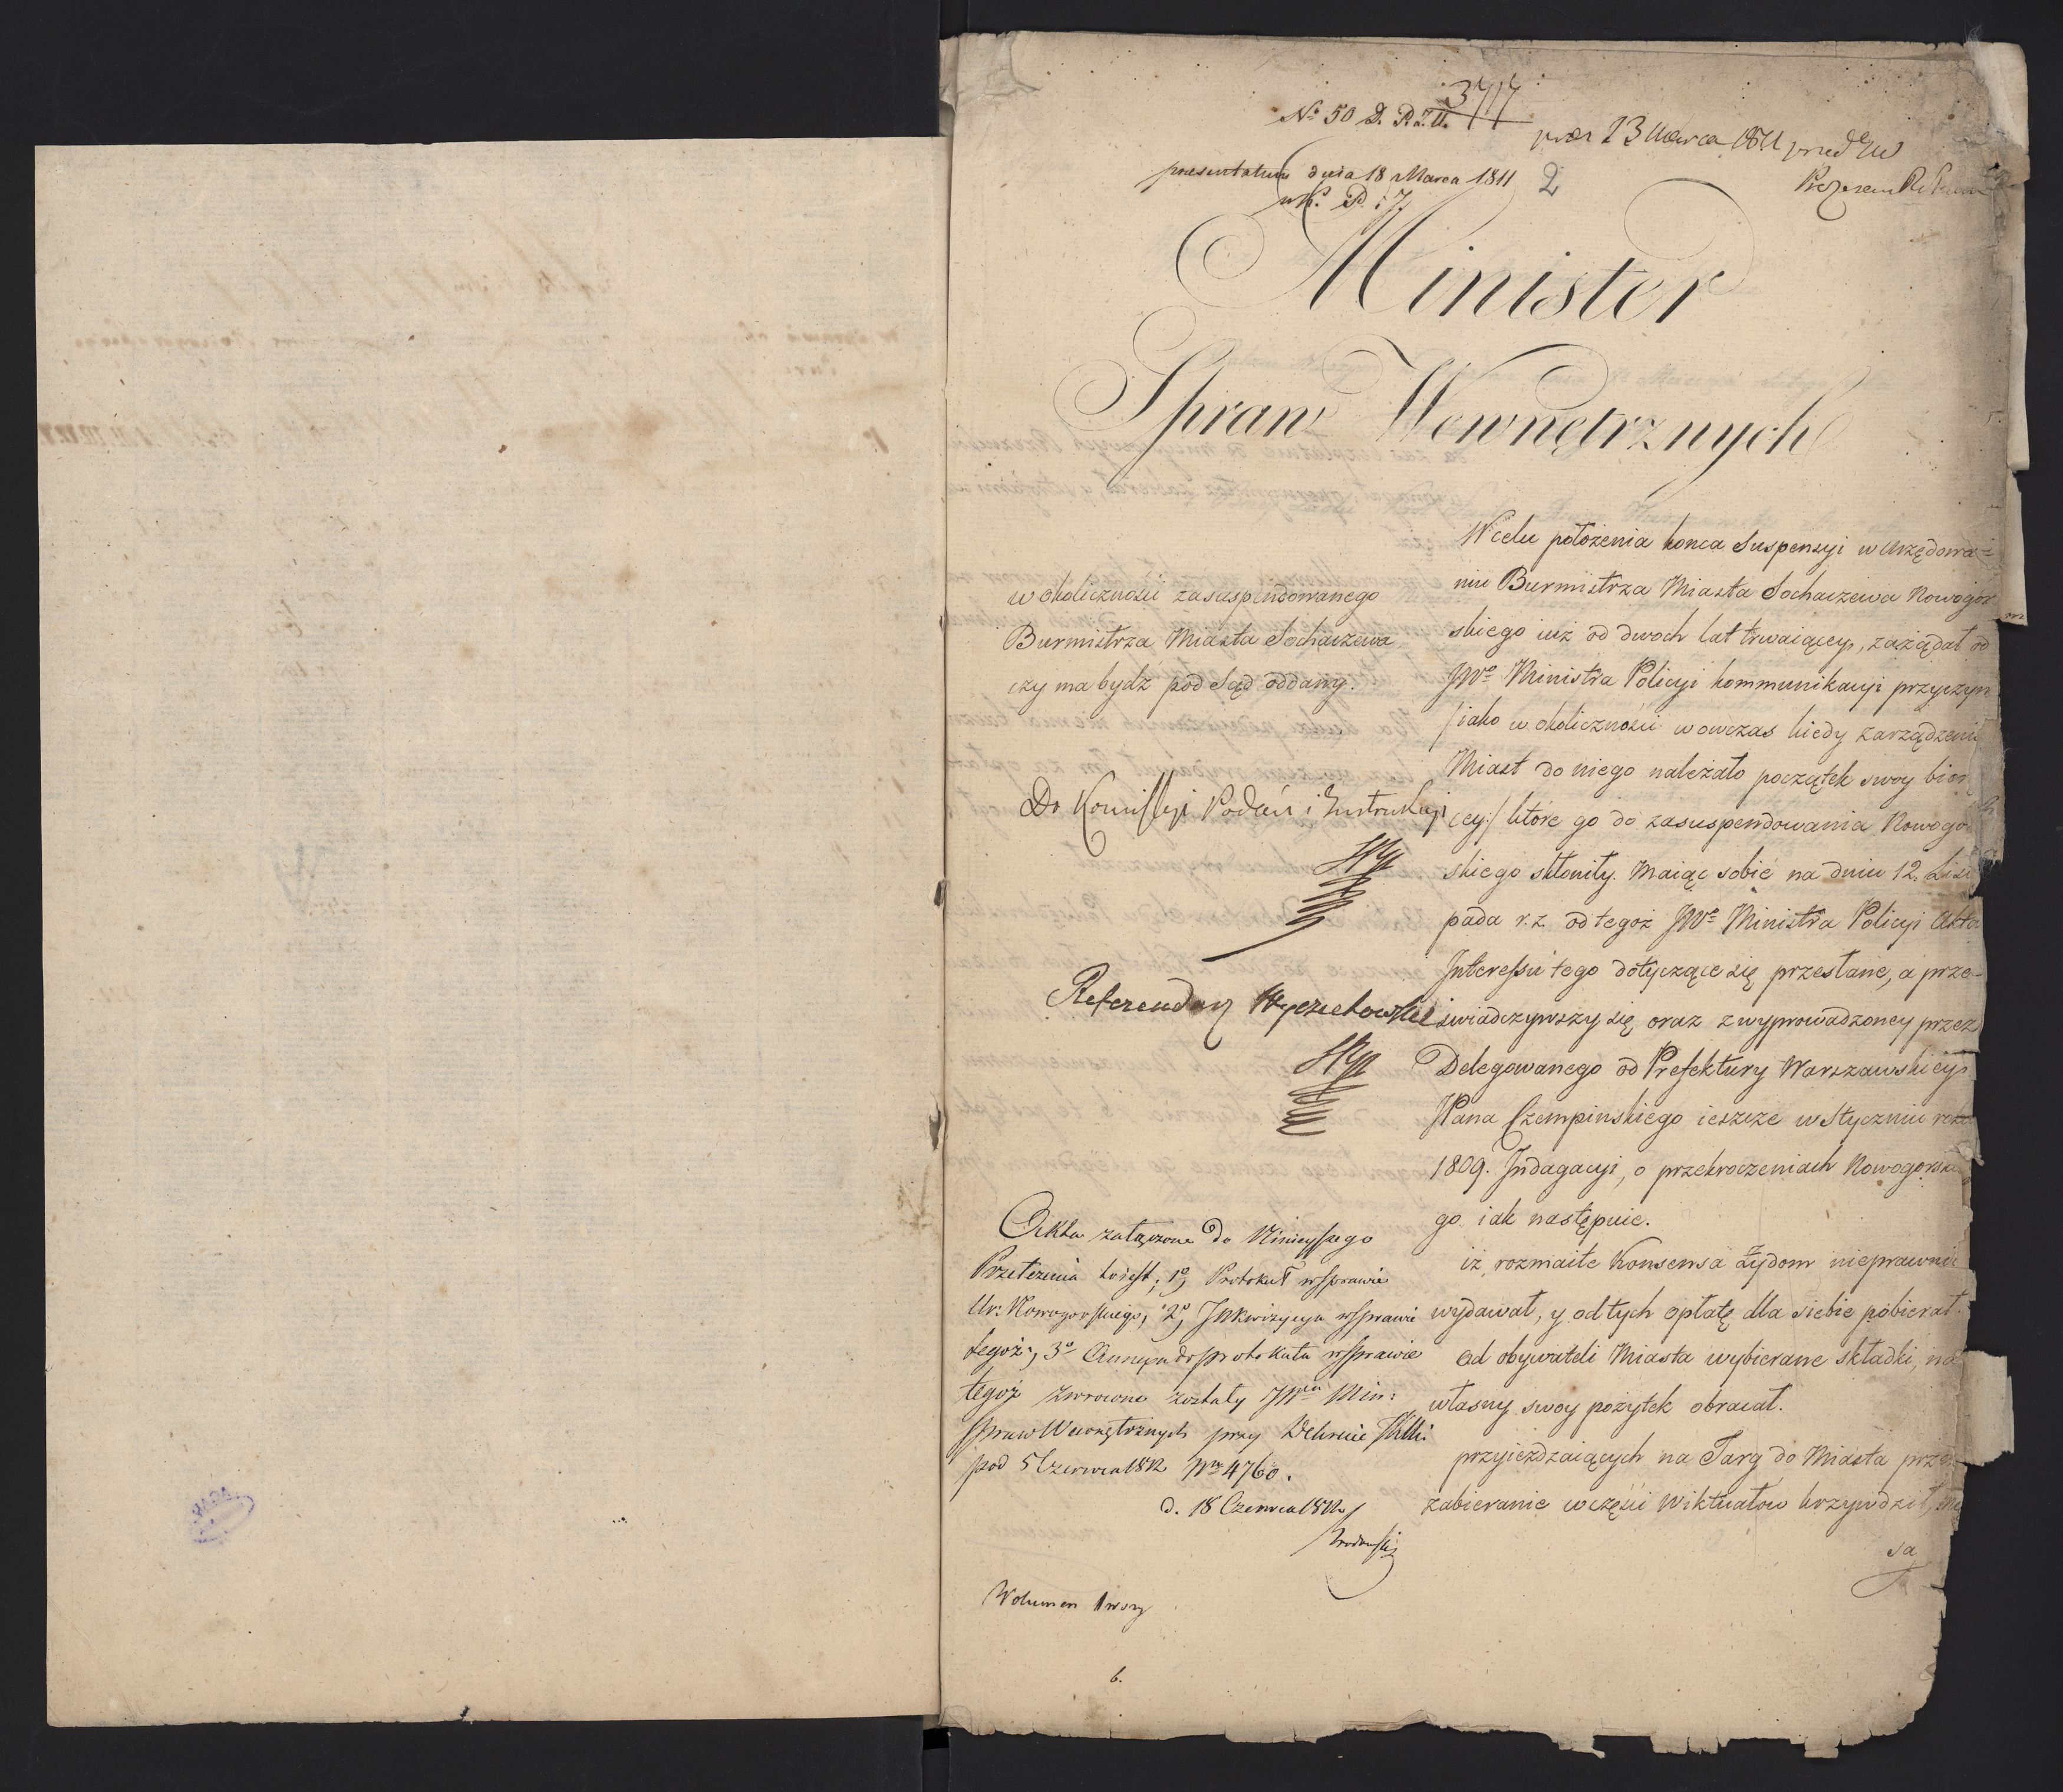 3717
№ 50 D. R. J. U.
13 Marca 1811
presentatum dnia 18 Marca 1811
2
Minister
Spraw Wewnętrznych
w okoliczności zasuspendowanego
Burmistrza Miasta Sochaczewa
czy ma bydź pod Sąd oddany.
Do Komissyi Podań i Instrukcyi
Referendarz Wyczechowski
Akta załączone do Ninieyszego
Przełożenia to iest, 1º Protokuł w sprawie
Ur: Nowogorskiego, 2º Inkwizycya w sprawie
tegoż, 3º Annexa do protokułu w sprawie
tegoż zwrocone zostały JWmu Min:
Spraw Wewnętrznych przy Dekrecie
pod 5 Czerwca 1812 Nro 4760.
d. 18 Czerwca 1812
Wolumen 1wszy
6.
W celu położenia końca Suspensyi w Urzędowa=
niu Burmistrza Miasta Sochaczewa Nowogor
skiego iuż od dwoch lat trwaiącey, zażądał od
JWº Ministra Policyi kommunikacyi przyczyn
/iako w okoliczności wowczas kiedy zarządzeni
Miast do niego należało początek swoy bior
cey:/ ktore go do zasuspendowania Nowogo
skiego skłoniły. Maiąc sobie na dniu 12. List
pada r.z. od tegoż JWº Ministra Policyi Akta
Interessu tego dotyczące się przesłane, a prze-
świadczywszy się oraz z wyprowadzoney przez
Delegowanego od Prefektury Warszawskiey
JPana Czempinskiego ieszcze w Styczniu roku
1809. Indagacyi, o przekroczeniach Nowogorski
go iak następuie.
iż rozmaite Konsensa Żydom nieprawnie
wydawał, y od tych opłatę dla siebie pobierał.
od obywateli Miasta wybierane składki, na
własny swoy pożytek obracał.
przyieżdzaiących na Targ do Miasta przez
zabieranie w części Wiktuałow krzywdził,
sa